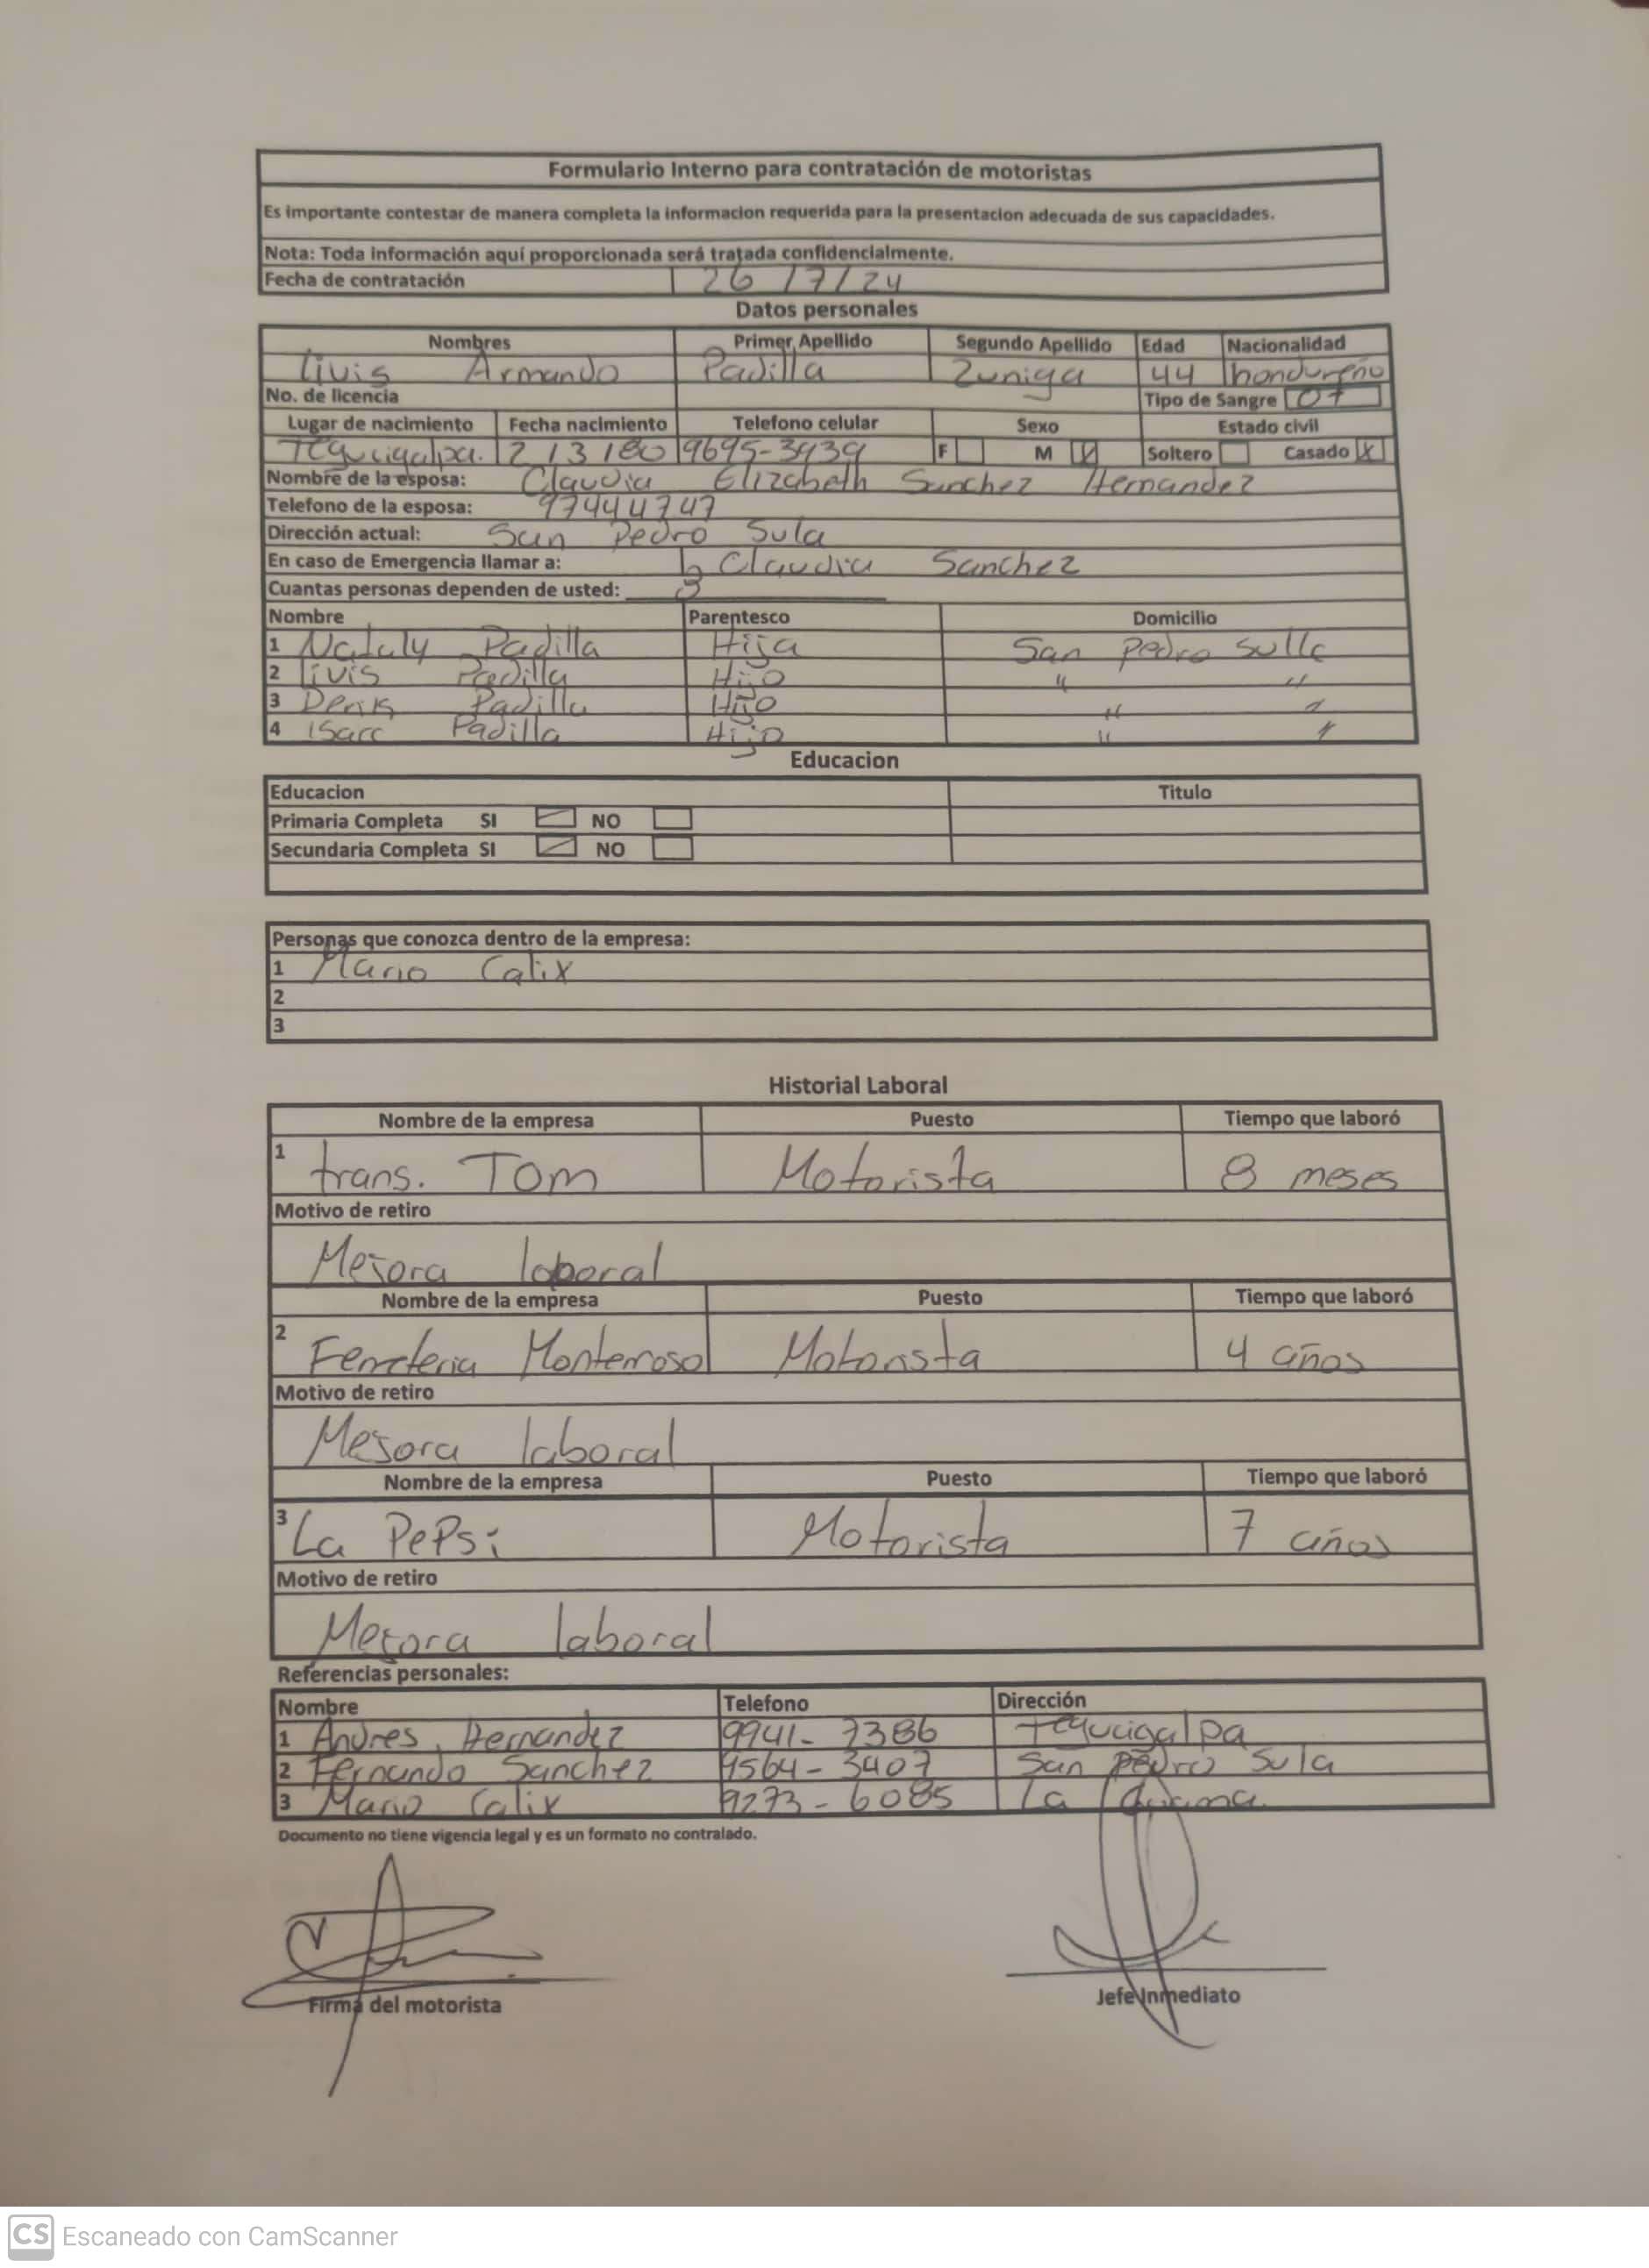 Formulario Interno para contratación de motoristas
Es importante contestar de manera completa la informacion requerida para la presentacion adecuada de sus capacidades.
Nota: Toda información aquí proporcionada será tratada confidencialmente.
Fecha de contratación 26/7/24
Datos personales
Nombres Primer Apellido Segundo Apellido Edad Nacionalidad
Livis Armando Padilla Zuniga 44 hondureño
No. de licencia Tipo de Sangre O+
Lugar de nacimiento Fecha nacimiento Telefono celular Sexo Estado civil
Tegucigalpa. 2/3/80 9695-3939 F M Soltero Casado X
Nombre de la esposa: Claudia Elizabeth Sanchez Hernandez
Telefono de la esposa: 97444747
Dirección actual: San Pedro Sula
En caso de Emergencia llamar a: Claudia Sanchez
Cuantas personas dependen de usted:
Nombre Parentesco Domicilio
1 Nataly Padilla Hija San Pedro Sulla
2 Livis Padilla Hijo " "
3 Denis Padilla Hijo " "
4 Isacc Padilla Hijo " "
Educacion
Educacion Titulo
Primaria Completa SI NO
Secundaria Completa SI NO
Personas que conozca dentro de la empresa:
1 Mario Calix
2
3
Historial Laboral
Nombre de la empresa Puesto Tiempo que laboró
1 trans. Tom Motorista 8 meses
Motivo de retiro
Mejora laboral
Nombre de la empresa Puesto Tiempo que laboró
2 Ferreteria Monterroso Motorista 4 años
Motivo de retiro
Mejora laboral
Nombre de la empresa Puesto Tiempo que laboró
3 La PePsi Motorista 7 años
Motivo de retiro
Mejora laboral
Referencias personales:
Nombre Telefono Dirección
1 Andres Hernandez 9941-7386 Tegucigalpa
2 Fernando Sanchez 9564-3407 San pedro Sula
3 Mario Calix 9273-6085 La
Documento no tiene vigencia legal y es un formato no contralado.
Firma del motorista Jefe Inmediato
CS Escaneado con CamScanner